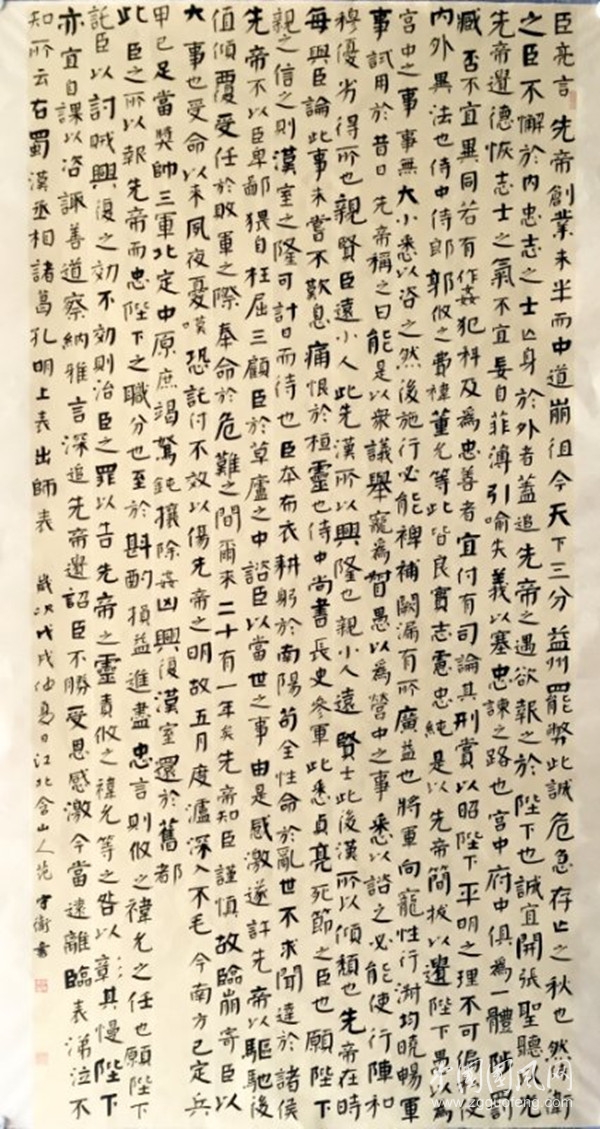 臣亮言先帝創業未半而中道崩徂今天下三分益州罷弊此誠危急存亡之秋也然侍衛
之臣不懈於內忠志之士亡身於外者蓋追先帝之遇欲報之於陛下也誠宜開張聖聽以光
先帝遺德恢志士之氣不宜妄自菲薄引喻失義以塞忠諫之路也宮中府中俱為一體陟罰
臧否不宜異同若有作姦犯科及為忠善者宜付有司論其刑賞以昭陛下平明之理不可偏私使
內外異法也侍中侍郎郭攸之費禕董允等此皆良實志慮忠純是以先帝簡拔以遺陛下愚以為
宮中之事事無大小悉以咨之然後施行必能裨補闕漏有所廣益也將軍向寵性行淑均曉暢軍
事試用於昔日先帝稱之曰能是以眾議舉寵為督愚以為營中之事悉以諮之必能使行陣和
穆優劣得所也親賢臣遠小人此先漢所以興隆也親小人遠賢士此後漢所以傾頹也先帝在時
每與臣論此事未嘗不歎息痛恨於桓靈也侍中尚書長史參軍此悉貞亮死節之臣也願陛下
親之信之則漢室之隆可計日而待也臣本布衣耕躬於南陽苟全性命於亂世不求聞達於諸侯
先帝不以臣卑鄙猥自枉屈三顧臣於草廬之中諮臣以當世之事由是感激遂許先帝以驅馳後
值傾覆受任於敗軍之際奉命於危難之間爾來二十有一年矣先帝知臣謹慎故臨崩寄臣以
大事也受命以來夙夜憂嘆恐託付不效以傷先帝之明故五月度瀘深入不毛今南方已定兵
甲已足當獎帥三軍北定中原庶竭駑鈍攘除姦凶興復漢室還於舊都
此臣之所以報先帝而忠陛下之職分也至於斟酌損益進盡忠言則攸之禕允之任也願陛下
託臣以討賊興復之効不効則治臣之罪以告先帝之靈責攸之禕允等之咎以章其慢陛下
亦宜自課以咨諏善道察納雅言深追先帝遺詔臣不勝受恩感激今當遠離臨表涕泣不
知所云右蜀漢丞相諸葛孔明上表出師表 歲次戊戌仲夏日江北含山人范守衛書
中国国风网
www.zgguofeng.com